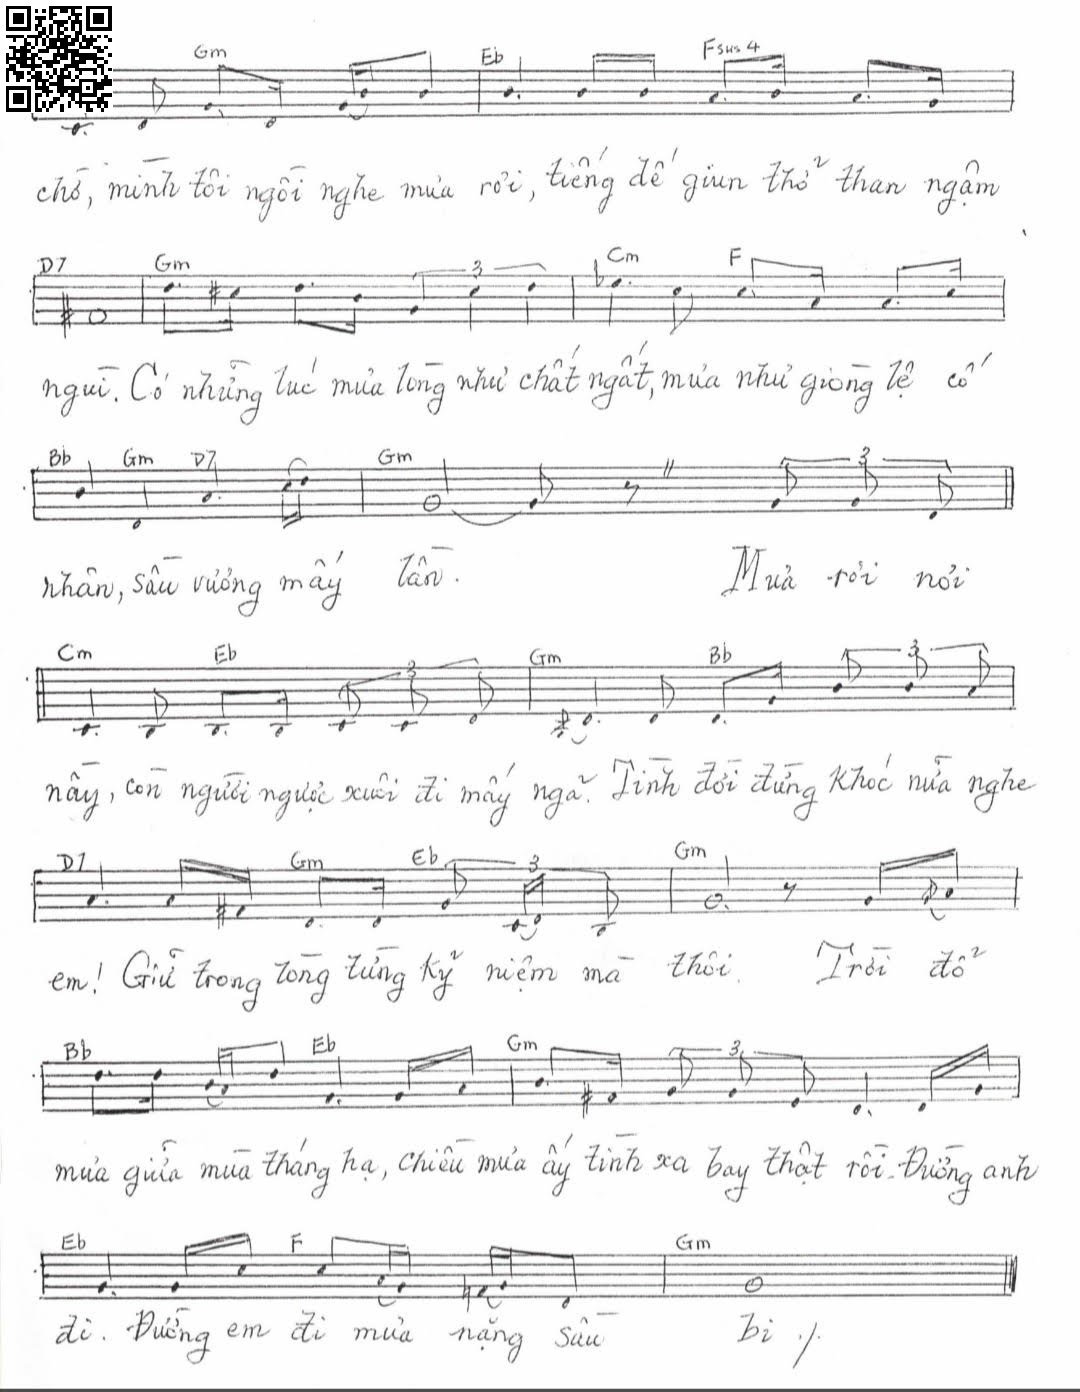 Gm Eb Fsus4
chờ, mình tôi ngồi nghe mưa rơi, tiếng dế giun thở than ngậm
D7 Gm 3 Cm F
ngùi. Có những lúc mưa lòng như chất ngất, mưa như giòng lệ cố
Bb Gm D7 Gm 3
nhân, sầu vương mấy lần. Mưa rơi nơi
Cm Eb 3 Gm Bb 3
nầy, còn người ngược xuôi đi mấy ngã. Tình đời đừng khóc nữa nghe
D7 Gm Eb 3 Gm
em! Giữ trong lòng từng kỹ niệm mà thôi. Trời đổ
Bb Eb Gm 3
mưa giửa mùa tháng hạ, chiều mưa ấy tình xa bay thật rồi. Đường anh
Eb F Gm
đi. Đường em đi mưa nặng sầu bi ./.